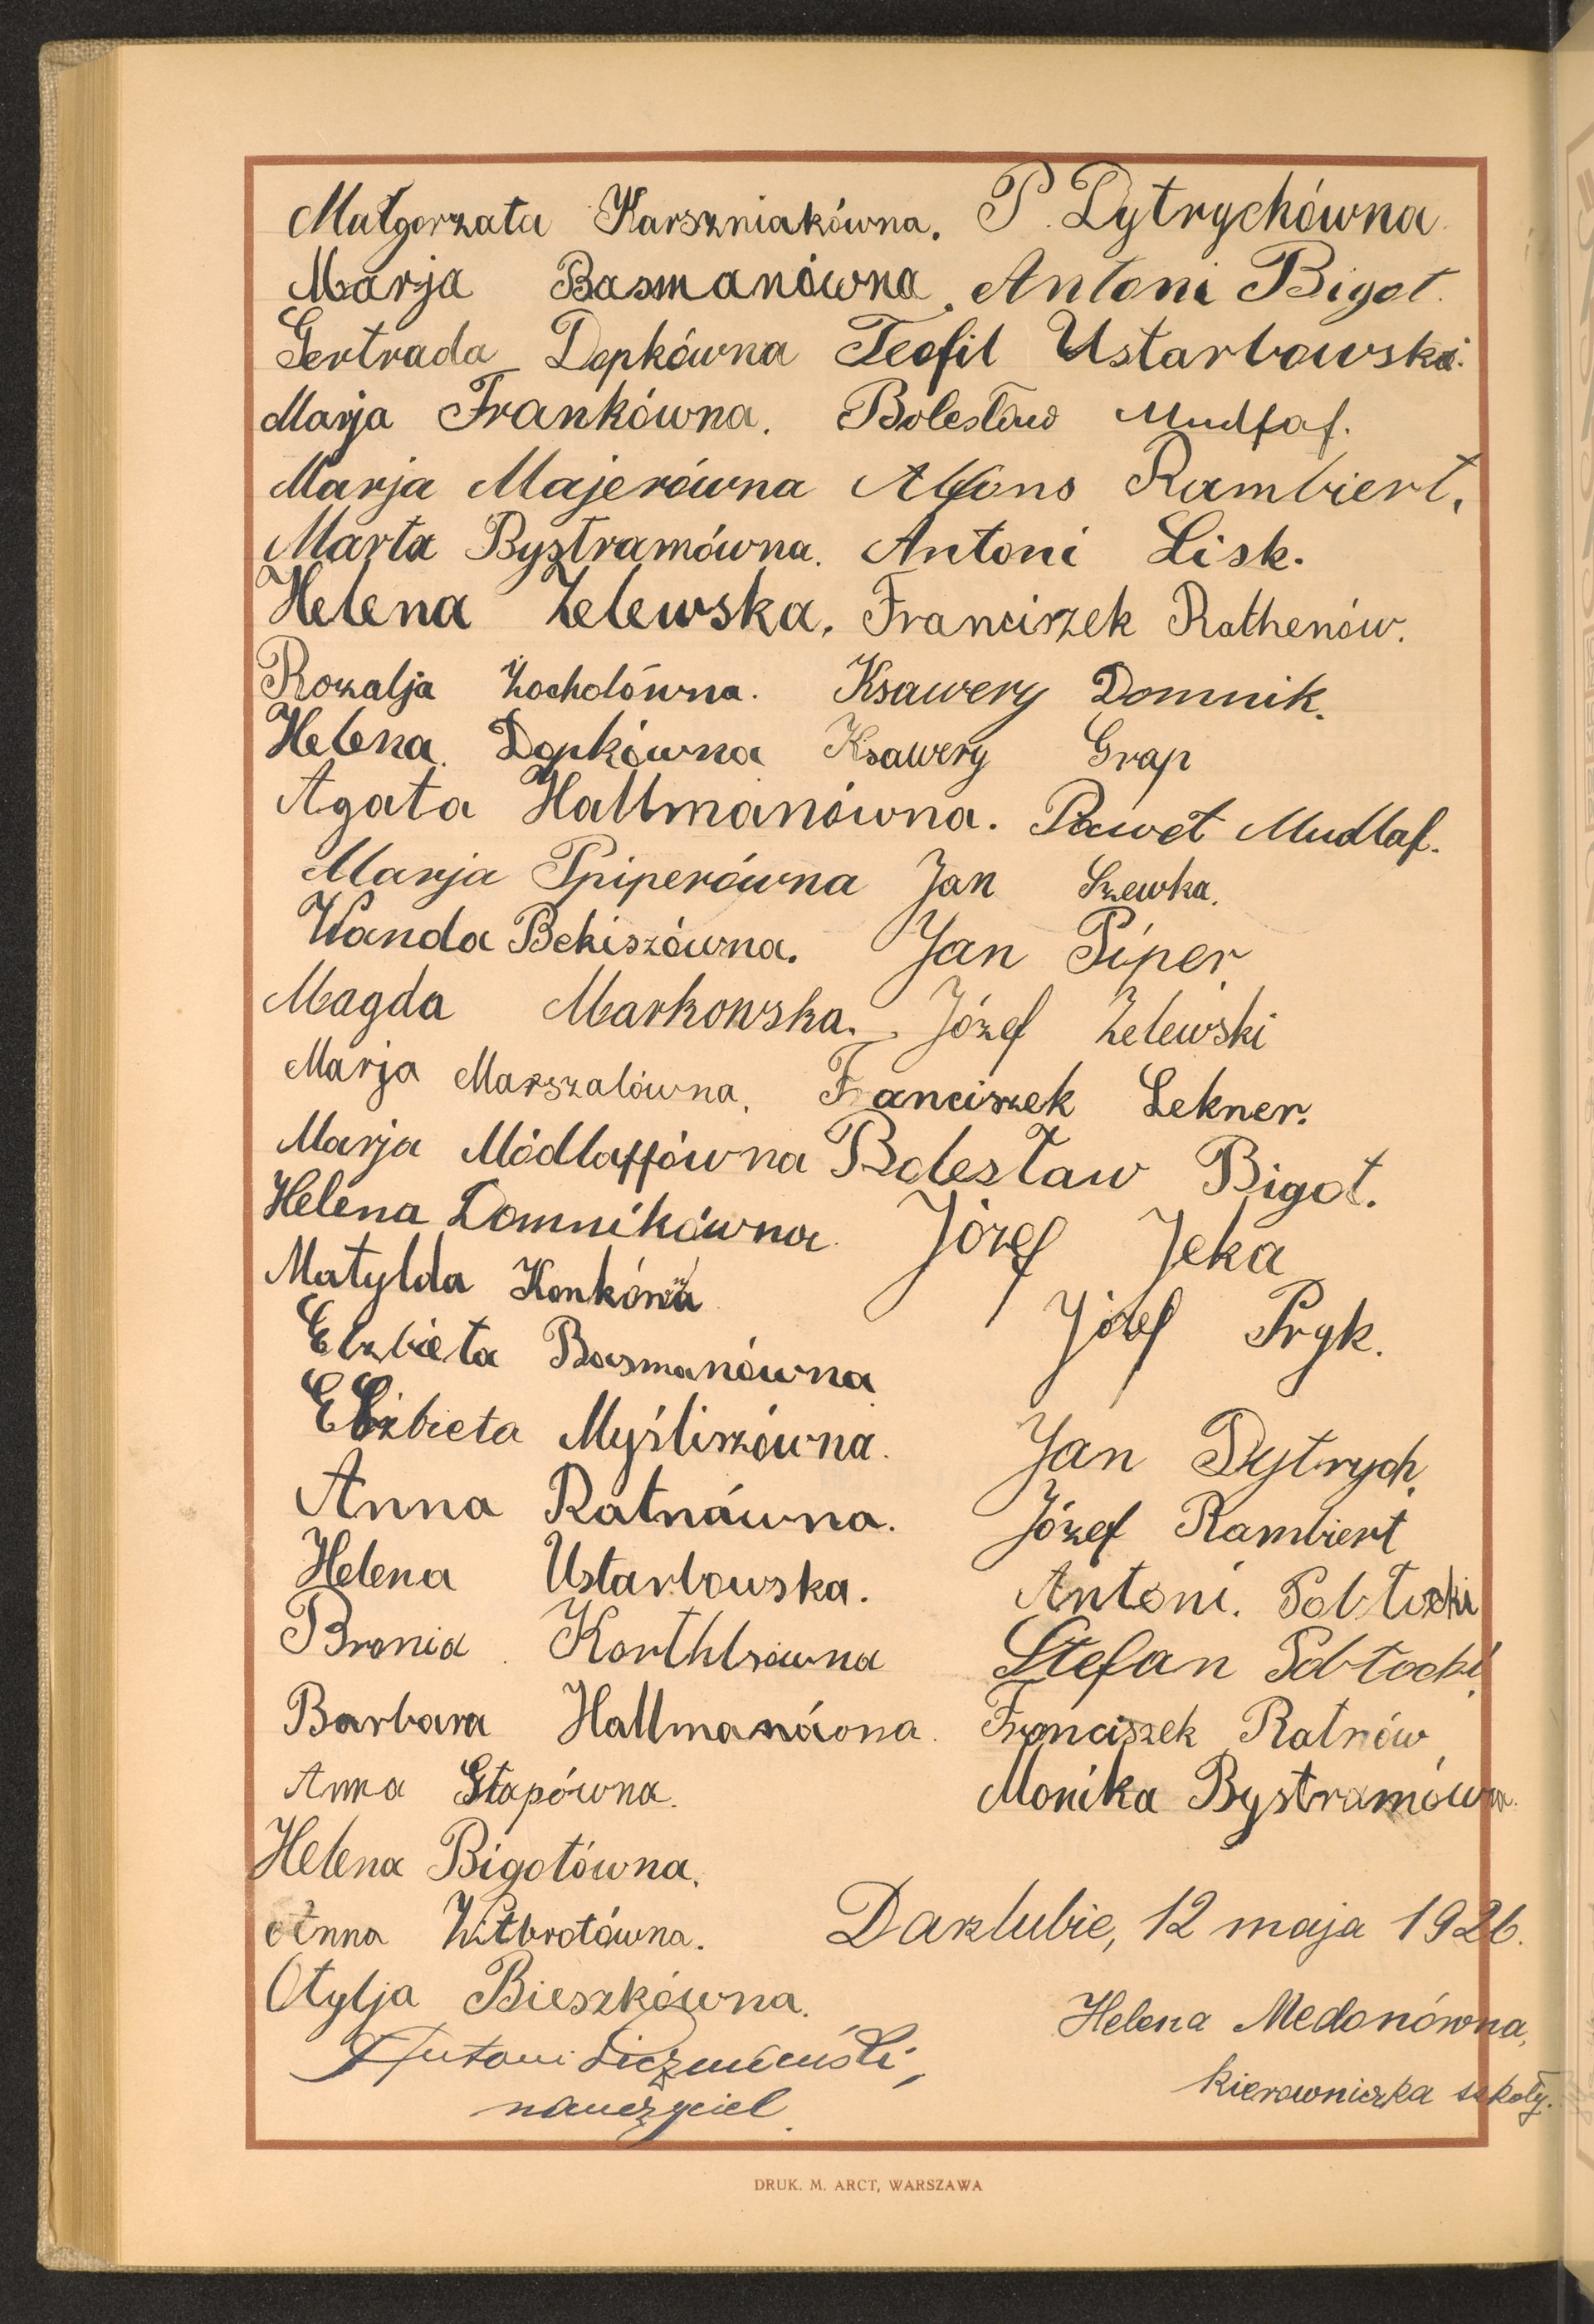 Małgorzata Karszniakówna. P. Dytrychówna.
Marja Basmanówna. Antoni Bigot.
Gertrada Depkówna Teofil Ustarbowski.
Marja Frankówna. Bolesław Mudlaf.
Marja Majerówna Alfons Rambiert.
Marta Bystramówna. Antoni Lisk.
Helena Zelewska. Franciszek Rathenów.
Rozalja Żochołówna. Ksawery Domnik.
Helena Depkówna Ksawery Grap
Agata Hallmanówna. Paweł Mudlaf.
Marja Ppiperówna Jan Szewka.
Wanda Bekiszówna. Jan Piper
Magda Markowska. Józef Zelewski
Marja Marszalówna. Franciszek Lekner.
Marja Módlaffówna Bolesław Bigot.
Helena Domnikówna. Józef Jeka
Matylda Konkówna
Józef Pryk.
Elzbieta Basmanówna
Elżbieta Myśliszówna. Jan Dytrych.
Anna Ratnówna. Józef Rambiert
Helena Ustarbowska. Antoni. Potłocki
Bronia Stefan Pobłocki
Barbara Hallmanówna. Franciszek Ratnów
Anna Monika Bystramówna.
Helena Bigotówna.
Anna Witbrotówna. Darzlubie, 12 maja 1926.
Otylja Bieszkówna.
Helena Medonówna,
Antoni
kierowniczka szkoły.
nauczyciel.
DRUK. M. ARCT, WARSZAWA